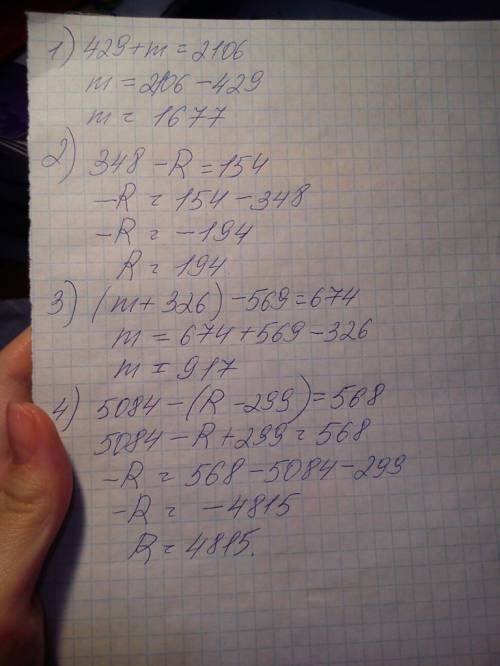 1) 429+m=2106
m=2106-429
m=1677
2) 348-R=154
-R=154-348
-R=-194
R=194
3) (m+326)-569=674
m=674+569-326
m=917
4) 5084-(R-299)=568
5084-R+299=568
-R=568-5084-299
-R=-4815
R=4815.